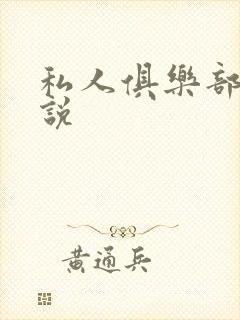 私人俱樂部
說
黃通兵